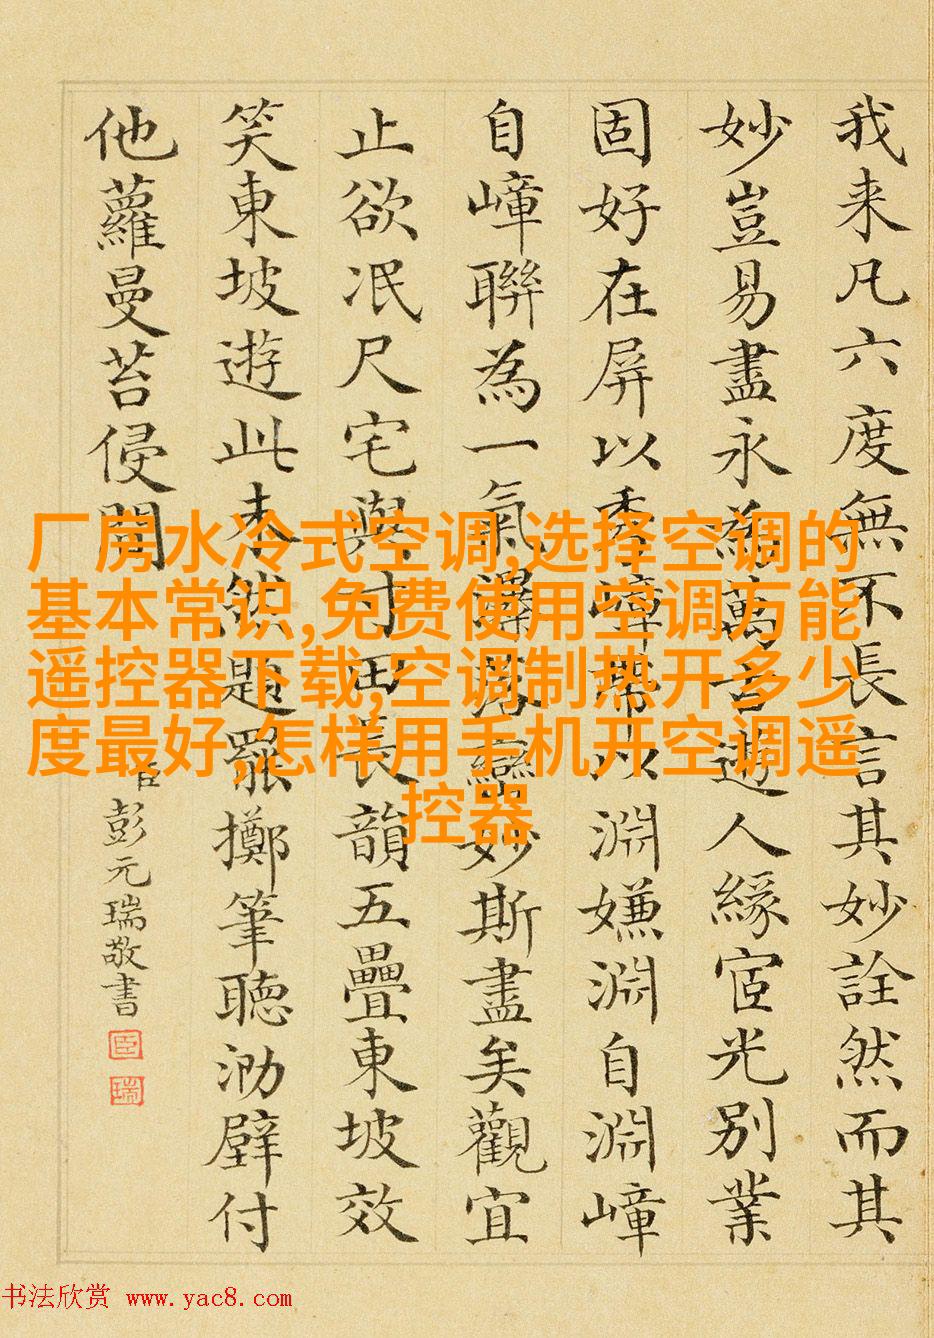 我来凡六度無不長言其妙詮然而其
妙豈易盡永為萬古遊人緣宧光別業
固好在屏以秀嶂帶以淵嫌淵自淵嶂
自嶂聯為一氣妙斯盡矣觀宜
止欲泯尺宅與寸田長韻五疊東坡效
笑東坡遊此未題罷擲筆聽泐壁付
他蘿曼苔侵
臣彭元瑞敬書
臣
瑞
厂房水冷式空调,选择空调的
基本常识,免费使用空调万能
遥控器下载,空调制热开多少
度最好,怎样用手机开空调遥
控器
书法欣赏 www.yac8.com